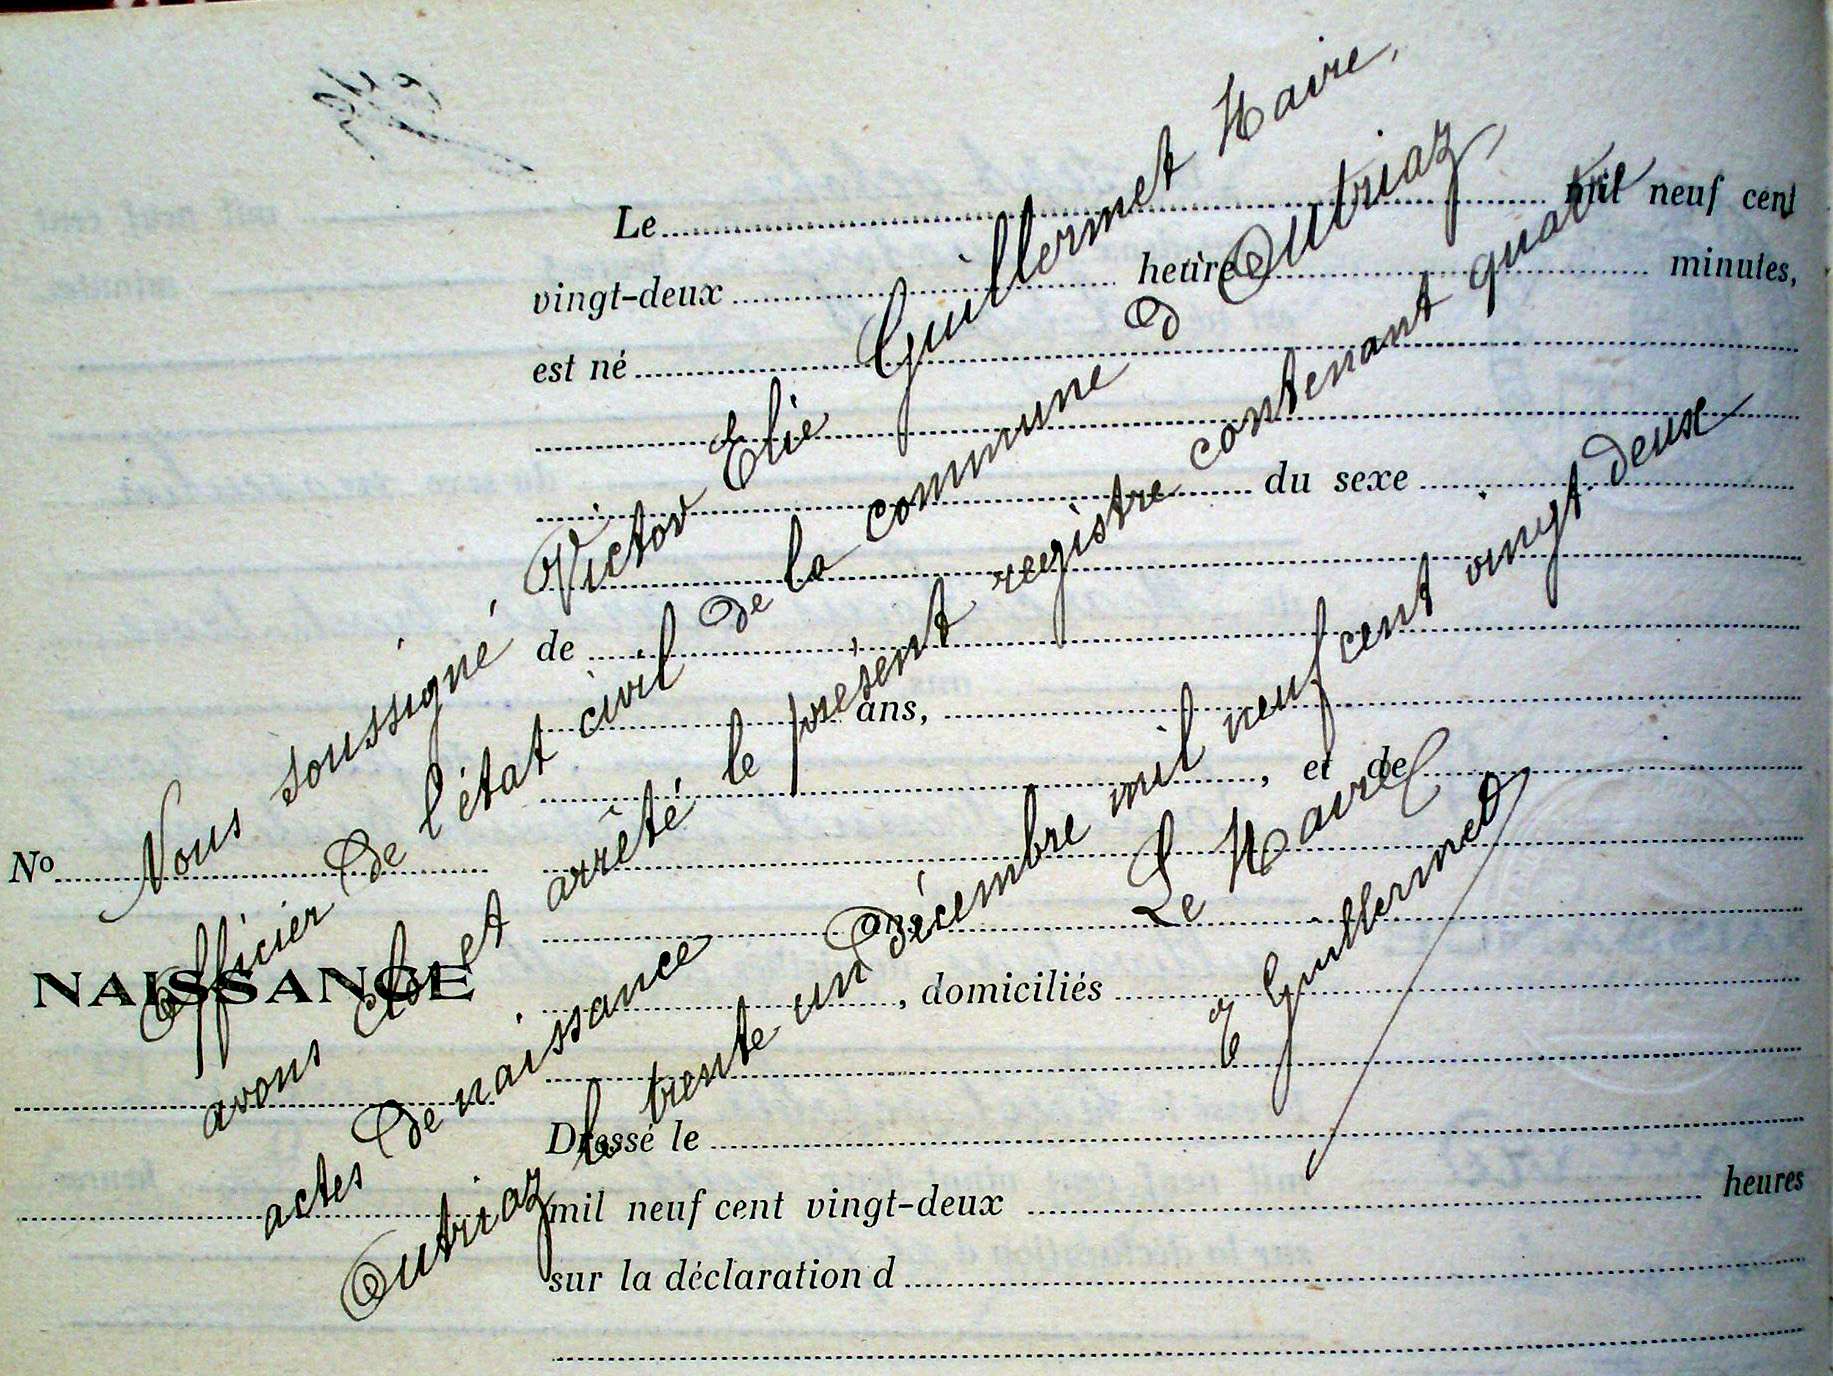 Nous soussigné Victor Elie Guillermet Maire,
Officier de l'état civil de la commune d'Outriaz,
avons clos et arrêté le présent registre contenant quatre
actes de naissance
Outriaz le trente un décembre mil neuf cent vingt deux
Le Maire
E Guillermet
Le mil neuf cent
vingt-deux heure minutes,
est né
du sexe
de
ans,
, et de
No
ans
NAISSANCE
, domiciliés
Dressé le
mil neuf cent vingt-deux heures
sur la déclaration d